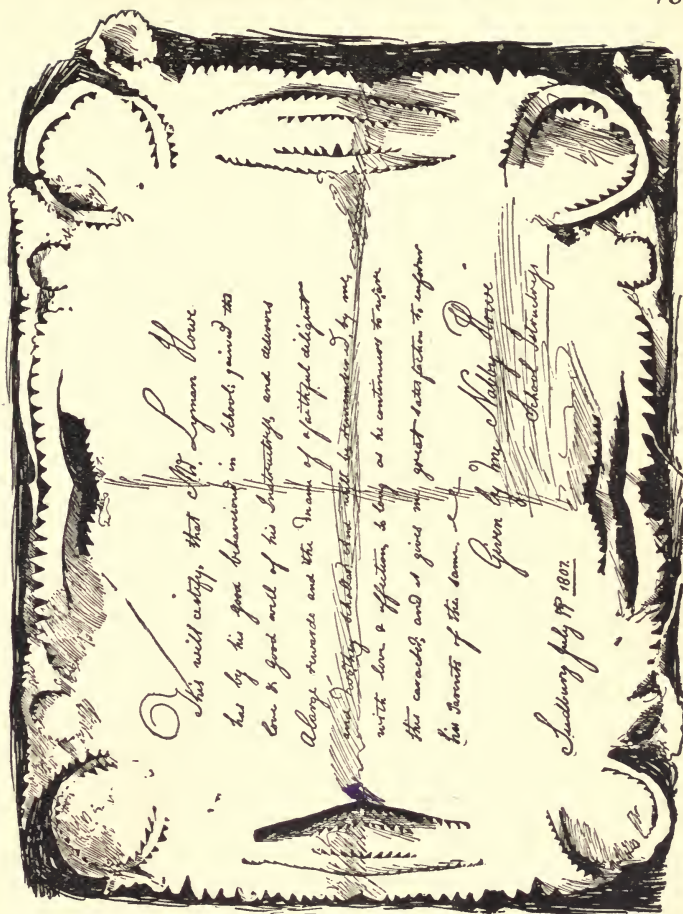 This will certify, that Mr. Lyman Howe
has by his good behaviour in School; gained the
love & good will of his Instructress, and deserves
A large rewards and the Name of a faithful diligent
and worthy scholar and will be remembered by me,
with love & affection so long as he continues to
this caracter; and it gives me great satisfaction to inform
his Parents of the same.
Given by me Nabby Howe
School
Sudbury July 19th 1807.